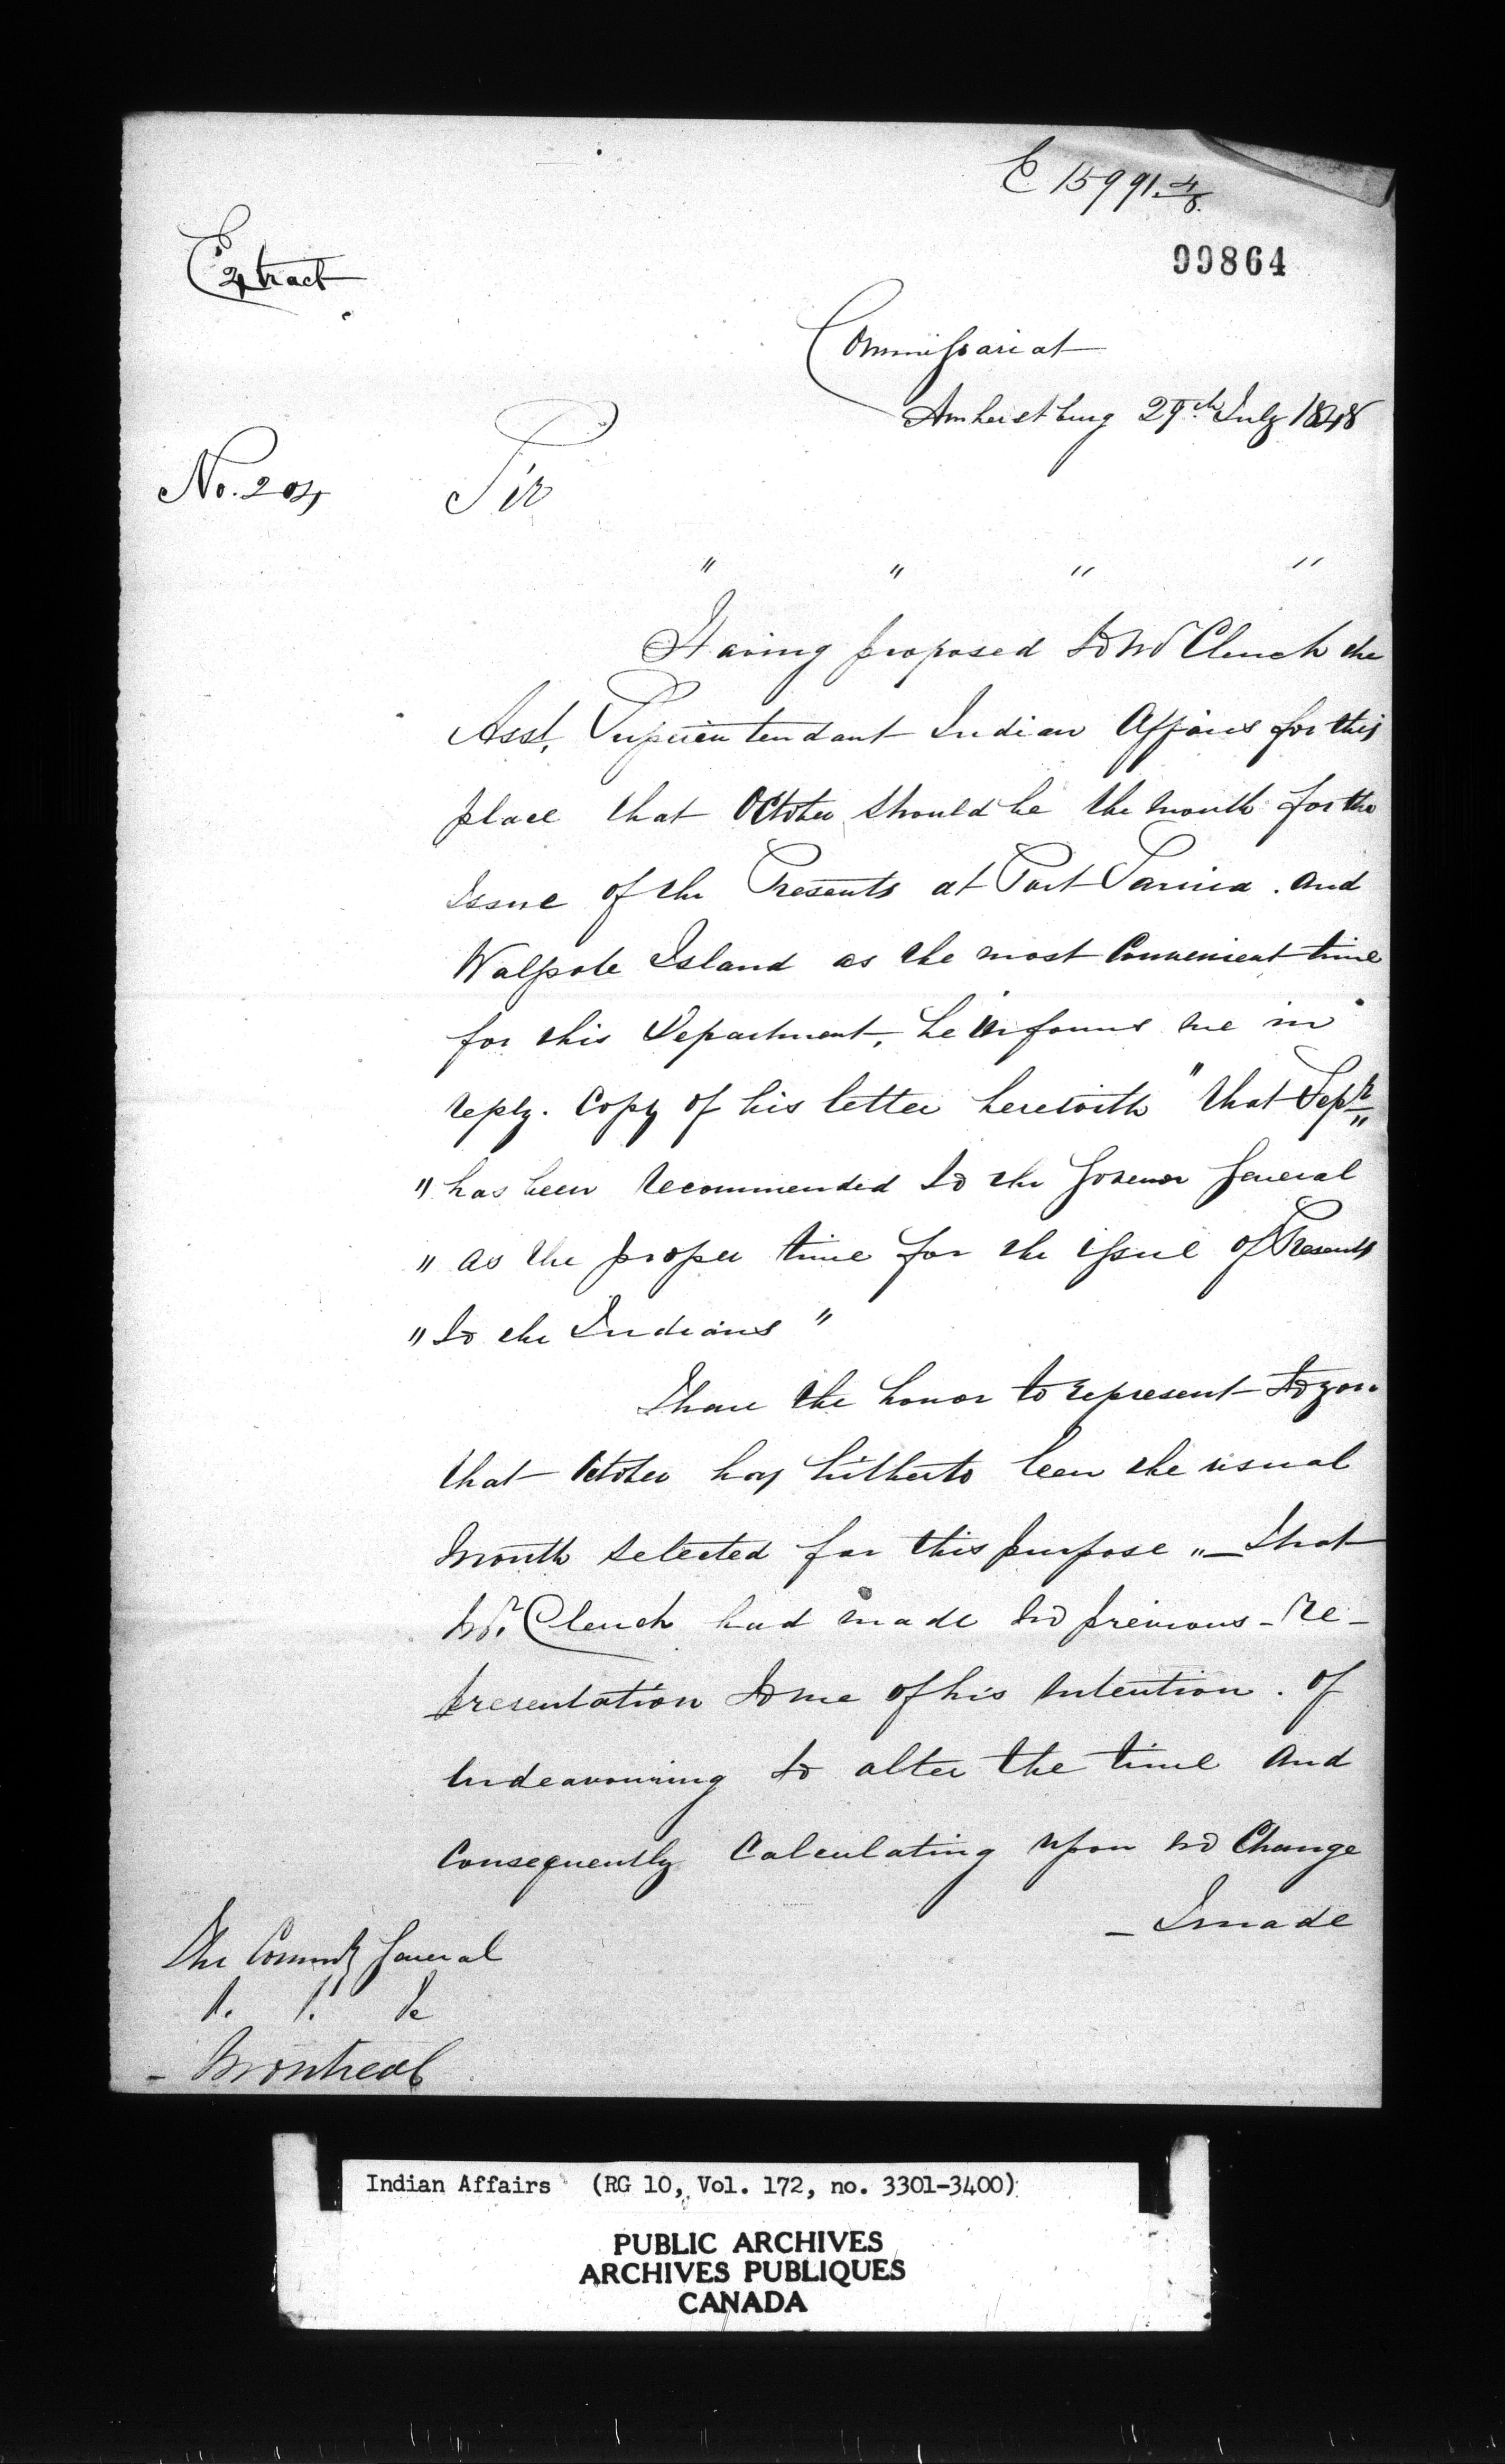 E 15991. 4/8.
99864
Extract
Commissariat
Amherstburg 29th July 1848
No. 204
Sir
" " " "
Having proposed to Mr Clench the
Asst. Superintendant Indian Affairs for this
place that October should be the month for the
Issue of the Presents at Port Sarnia. and
Walpole Island as the most Convenient time
for this Department, he informs me in
reply. Copy of his letter herewith "that Sepr
" has been recommended to the Governor General
" as the proper time for the issue of Presents
" to the Indians "
I have the honor to represent to you
that October has hitherto been the usual
Month selected for this purpose „— That
Mr. Clench had made no previous - re-
presentation to me of his intention. of
endeavouring to alter the time and
Consequently Calculating upon no Change
— I made
The Commy General
&. &. &c
- Montreal
Indian Affairs (RG 10, Vol. 172, no. 3301-3400)
PUBLIC ARCHIVES
ARCHIVES PUBLIQUES
CANADA